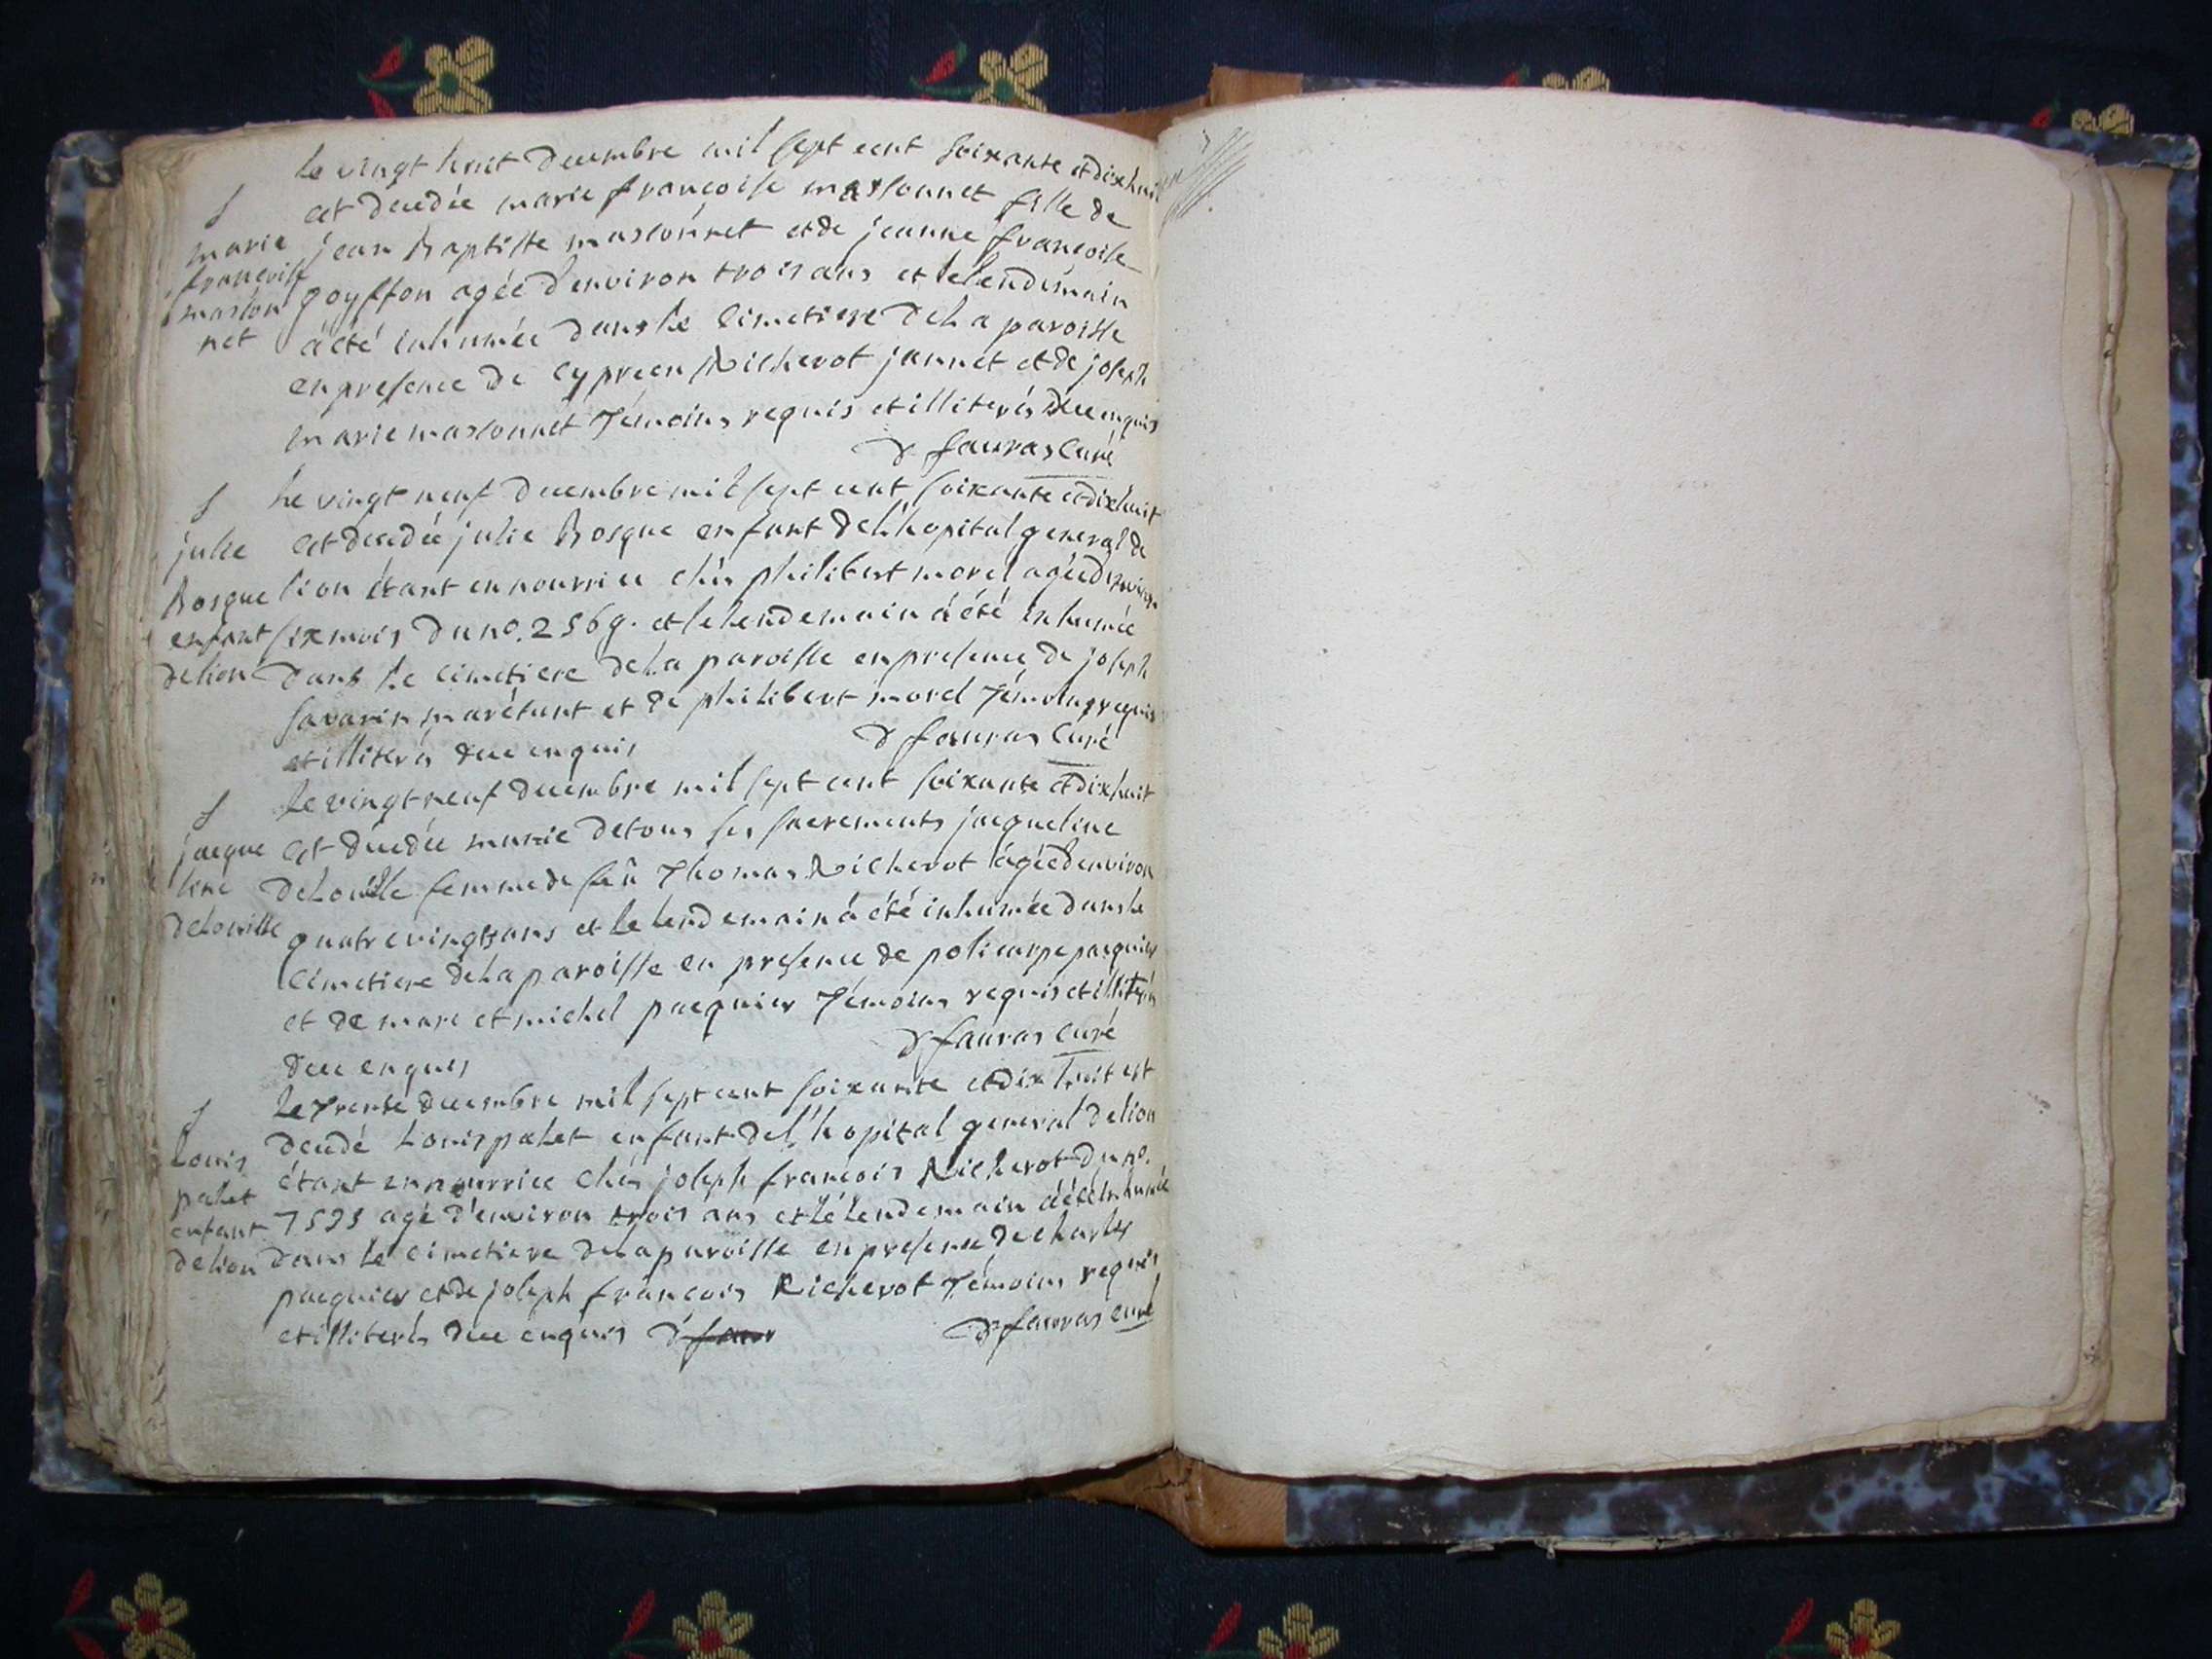 le vingt huit decembre mil sept cent soixante et dix huit
S
est decedée marie françoise massonnet fille de
marie
jean Baptiste massonnet et de jeanne françoise
françoise
goyffon agée d'environ trois ans et le lendemain
masson
net
à été inhumée dans le cimetiere de la paroisse
en presence de cyprien Richerot jannet et de joseph
marie massonnet Témoins requis et illiterés de ce enquis
D fauras Curé
le vingt neuf decembre mil sept cent soixante et dix huit
S
julie
est decedée julie Bosque enfant de l'hopital general de
Bosque
lion étant en nourrice chés philibert morel agée d'environ
enfant
six mois du no. 2569. et le lendemain à été inhumée
de lion
dans le cimetiere de la paroisse en presence de joseph
savarin et de philibert morel Témoins requis
et illiterés de ce enquis
D fauras Curé
le vingt neuf decembre mil sept cent soixante et dix huit
S
jacque
est décedée munie de tous ses sacrements jacqueline
line
delouille femme de feû Thomas Richerot âgée d'environ
delouille
quatre vingts ans et le lendemain à été inhumée dans le
cimetiere de la paroisse en presence de policarpe pacquier
et de marc et michel pacquier Témoins requis et illiterés
de ce enquis
D fauras curé
le Trente decembre mil sept cent soixante et dix huit est
S
Louis
decedé Louis palet enfant de l'hopital general de lion
palet
étant en nourrice chés joseph françois Richerot du no.
enfant
7593 agé d'environ trois ans et le lendemain à été inhumé
de lion
dans le cimetiere de la paroisse en presence de charles
pacquier et de joseph françois Richerot Témoins requis
et illiterés de ce enquis D faur
D fauras curé